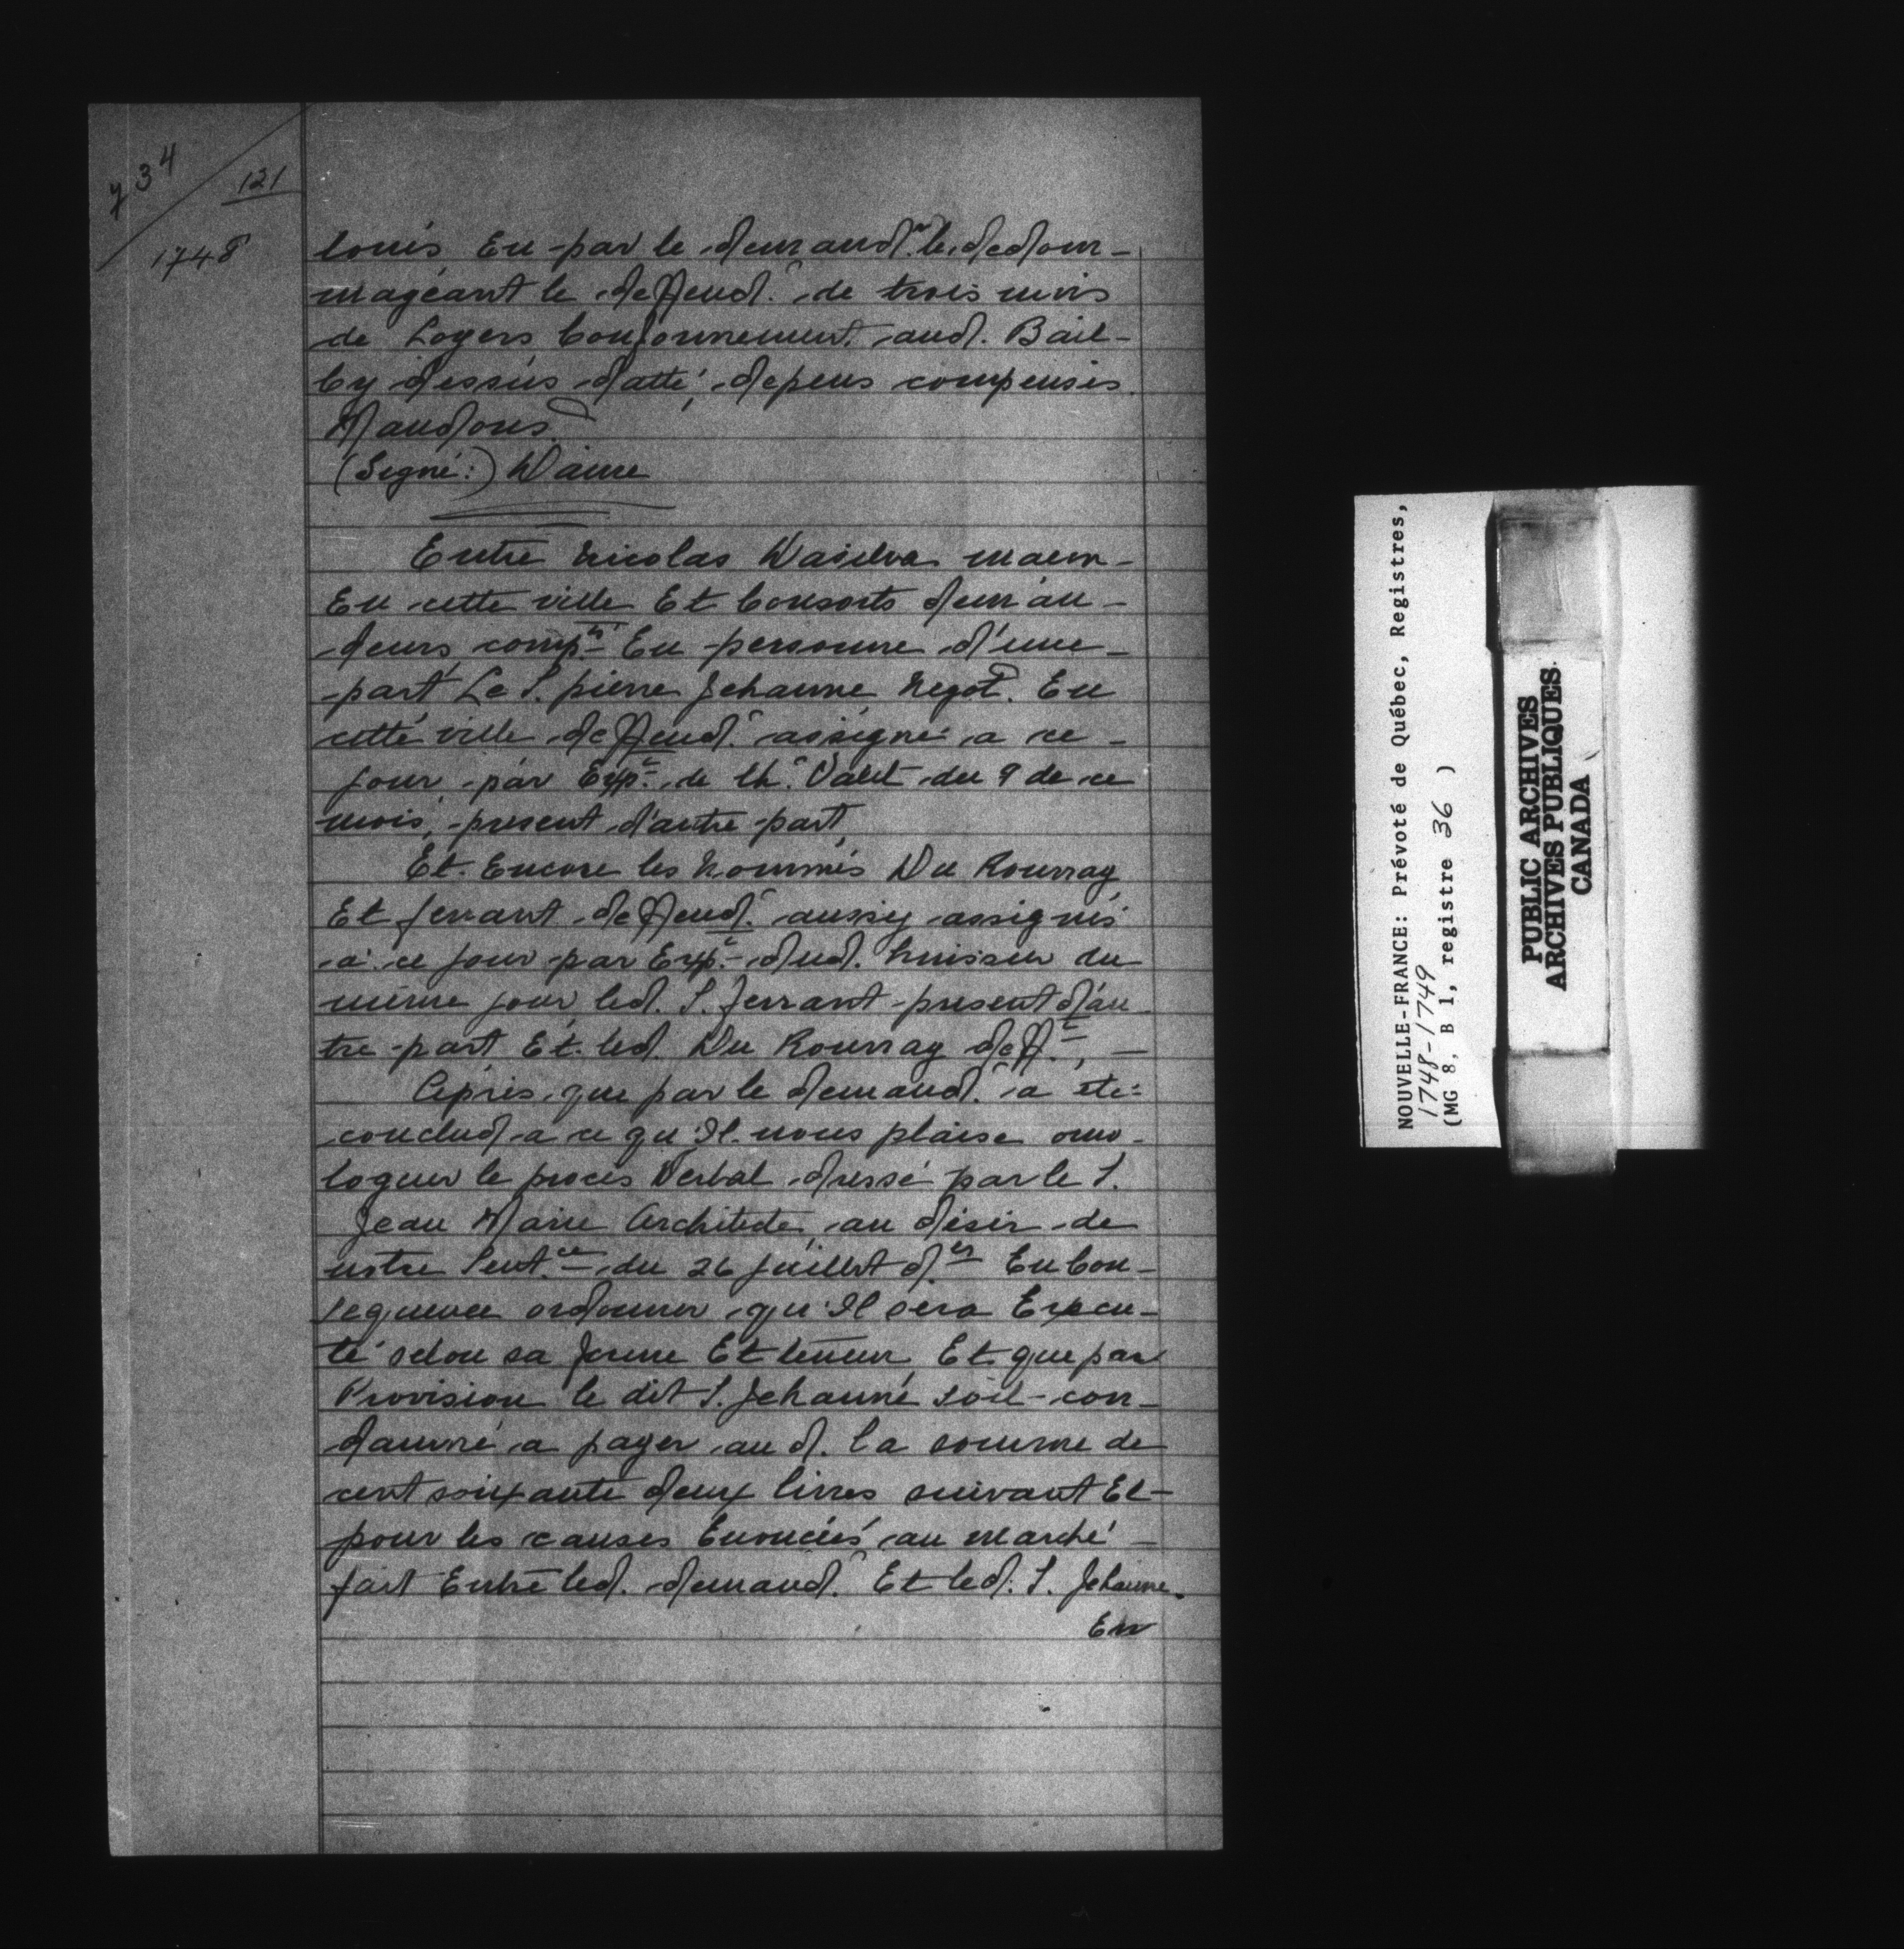 y 34
121
1748
loués En par le demandr. le dedom-
mageant le deffend.r de trois mois
de Loyers Conformement aud. Bail-
Cy dessús datté, depens compensés.
Mandons.
(Signé:) Daine
Entre Nicolas Dasilva macon-
En cette ville Et Consorts deman-
deurs comp.ts En personne d'une-
part Le S. pierre Jehanne Negot. En
cette ville deffend.r assigné a ce-
jour par Exp.t de Ch.r Valet du 9 de ce
mois, present d'autre part
Et Encore les Nommés Du Rouvray
Et ferrant deffend.r aussy assignés
a ce jour par Exp.t dud. huissier du
même jour led. S. ferrant present d'au-
tre part Et led. Du Rouvray deff.t, —
Après que par le demand.r a été
conclud a ce qu'Il nous plaise omo-
loguer le procès Verbal dressé par le S.
Jean Maire Architecte, au désir de
notre Sent.ce du 26 juillet d.er En Con-
sequence ordonner qu'Il sera Execu-
té selon sa forme Et teneur Et que par
Provision le dit S. Jehanne soit con-
damné a payer aud. la somme de
cent soixante deux livres suivant Et-
pour les causes Enoncées au marché-
fait Entre led. demand.r Et led. S. Jehanne.
En
NOUVELLE-FRANCE: Prévoté de Québec, Registres,
1748-1749
(MG 8, B 1, registre 36 )
PUBLIC ARCHIVES
ARCHIVES PUBLIQUES
CANADA